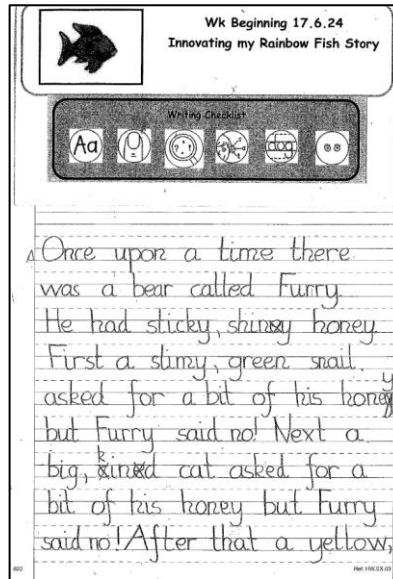 Wk Beginning 17.6.24
Innovating my Rainbow Fish Story
Writing Checklist
Aa
dog
Once upon a time there
was a bear called Furry
He had sticky, shiny honey
First a slimy, green snail
asked for a bit of his honey
but Furry said no! Next a
big, kind cat asked for a
bit of his honey but Furry
said no! After that a yellow,